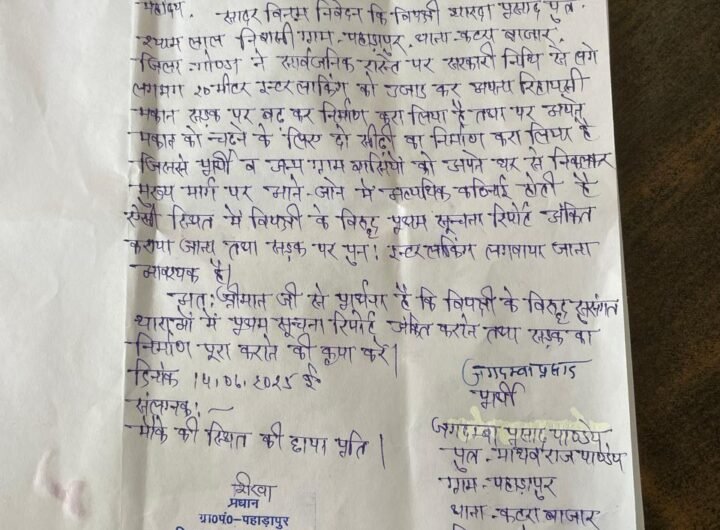 महोदय,
सादर विनम्र निवेदन कि विपक्षी शारदा प्रसाद पुत्र
श्याम लाल निवासी ग्राम-पहाड़ापुर, थाना-कटरा बाजार,
जिला-गोण्डा ने सार्वजनिक रास्ते पर सरकारी निधि से लगे
लगभग 20 मीटर इन्टरलाकिंग को उजाड़ कर अपना रिहायसी
मकान सड़क पर बढ़ कर निर्माण करा लिया है तथा पर अपने
मकान को चढ़ने के लिए दो सीढ़ी का निर्माण करा लिया है
जिससे प्रार्थी व अन्य ग्राम वासियों को अपने घर से निकलकर
मुख्य मार्ग पर आने-जाने में अत्यधिक कठिनाई होती है
ऐसी स्थित में विपक्षी के विरुद्ध प्रथम सूचना रिपोर्ट अंकित
कराया जाना तथा सड़क पर पुनः इन्टरलाकिंग लगवाया जाना
आवश्यक है।
अतः श्रीमान जी से प्रार्थना है कि विपक्षी के विरुद्ध सुसंगत
धाराओं में प्रथम सूचना रिपोर्ट अंकित कराने तथा सड़क का
निर्माण पूरा कराने की कृपा करें।
दिनांक 14.06.2025 ई
जगदम्बा प्रसाद
प्रार्थी
संलग्नक:~
मौके की स्थित की छाया प्रति।
जगदम्बा प्रसाद पाण्डेय
पुत्र-माधव राज पाण्डेय
ग्राम-पहाड़ापुर
थाना-कटरा बाजार
प्रधान
ग्रा०पं०-पहाड़ापुर